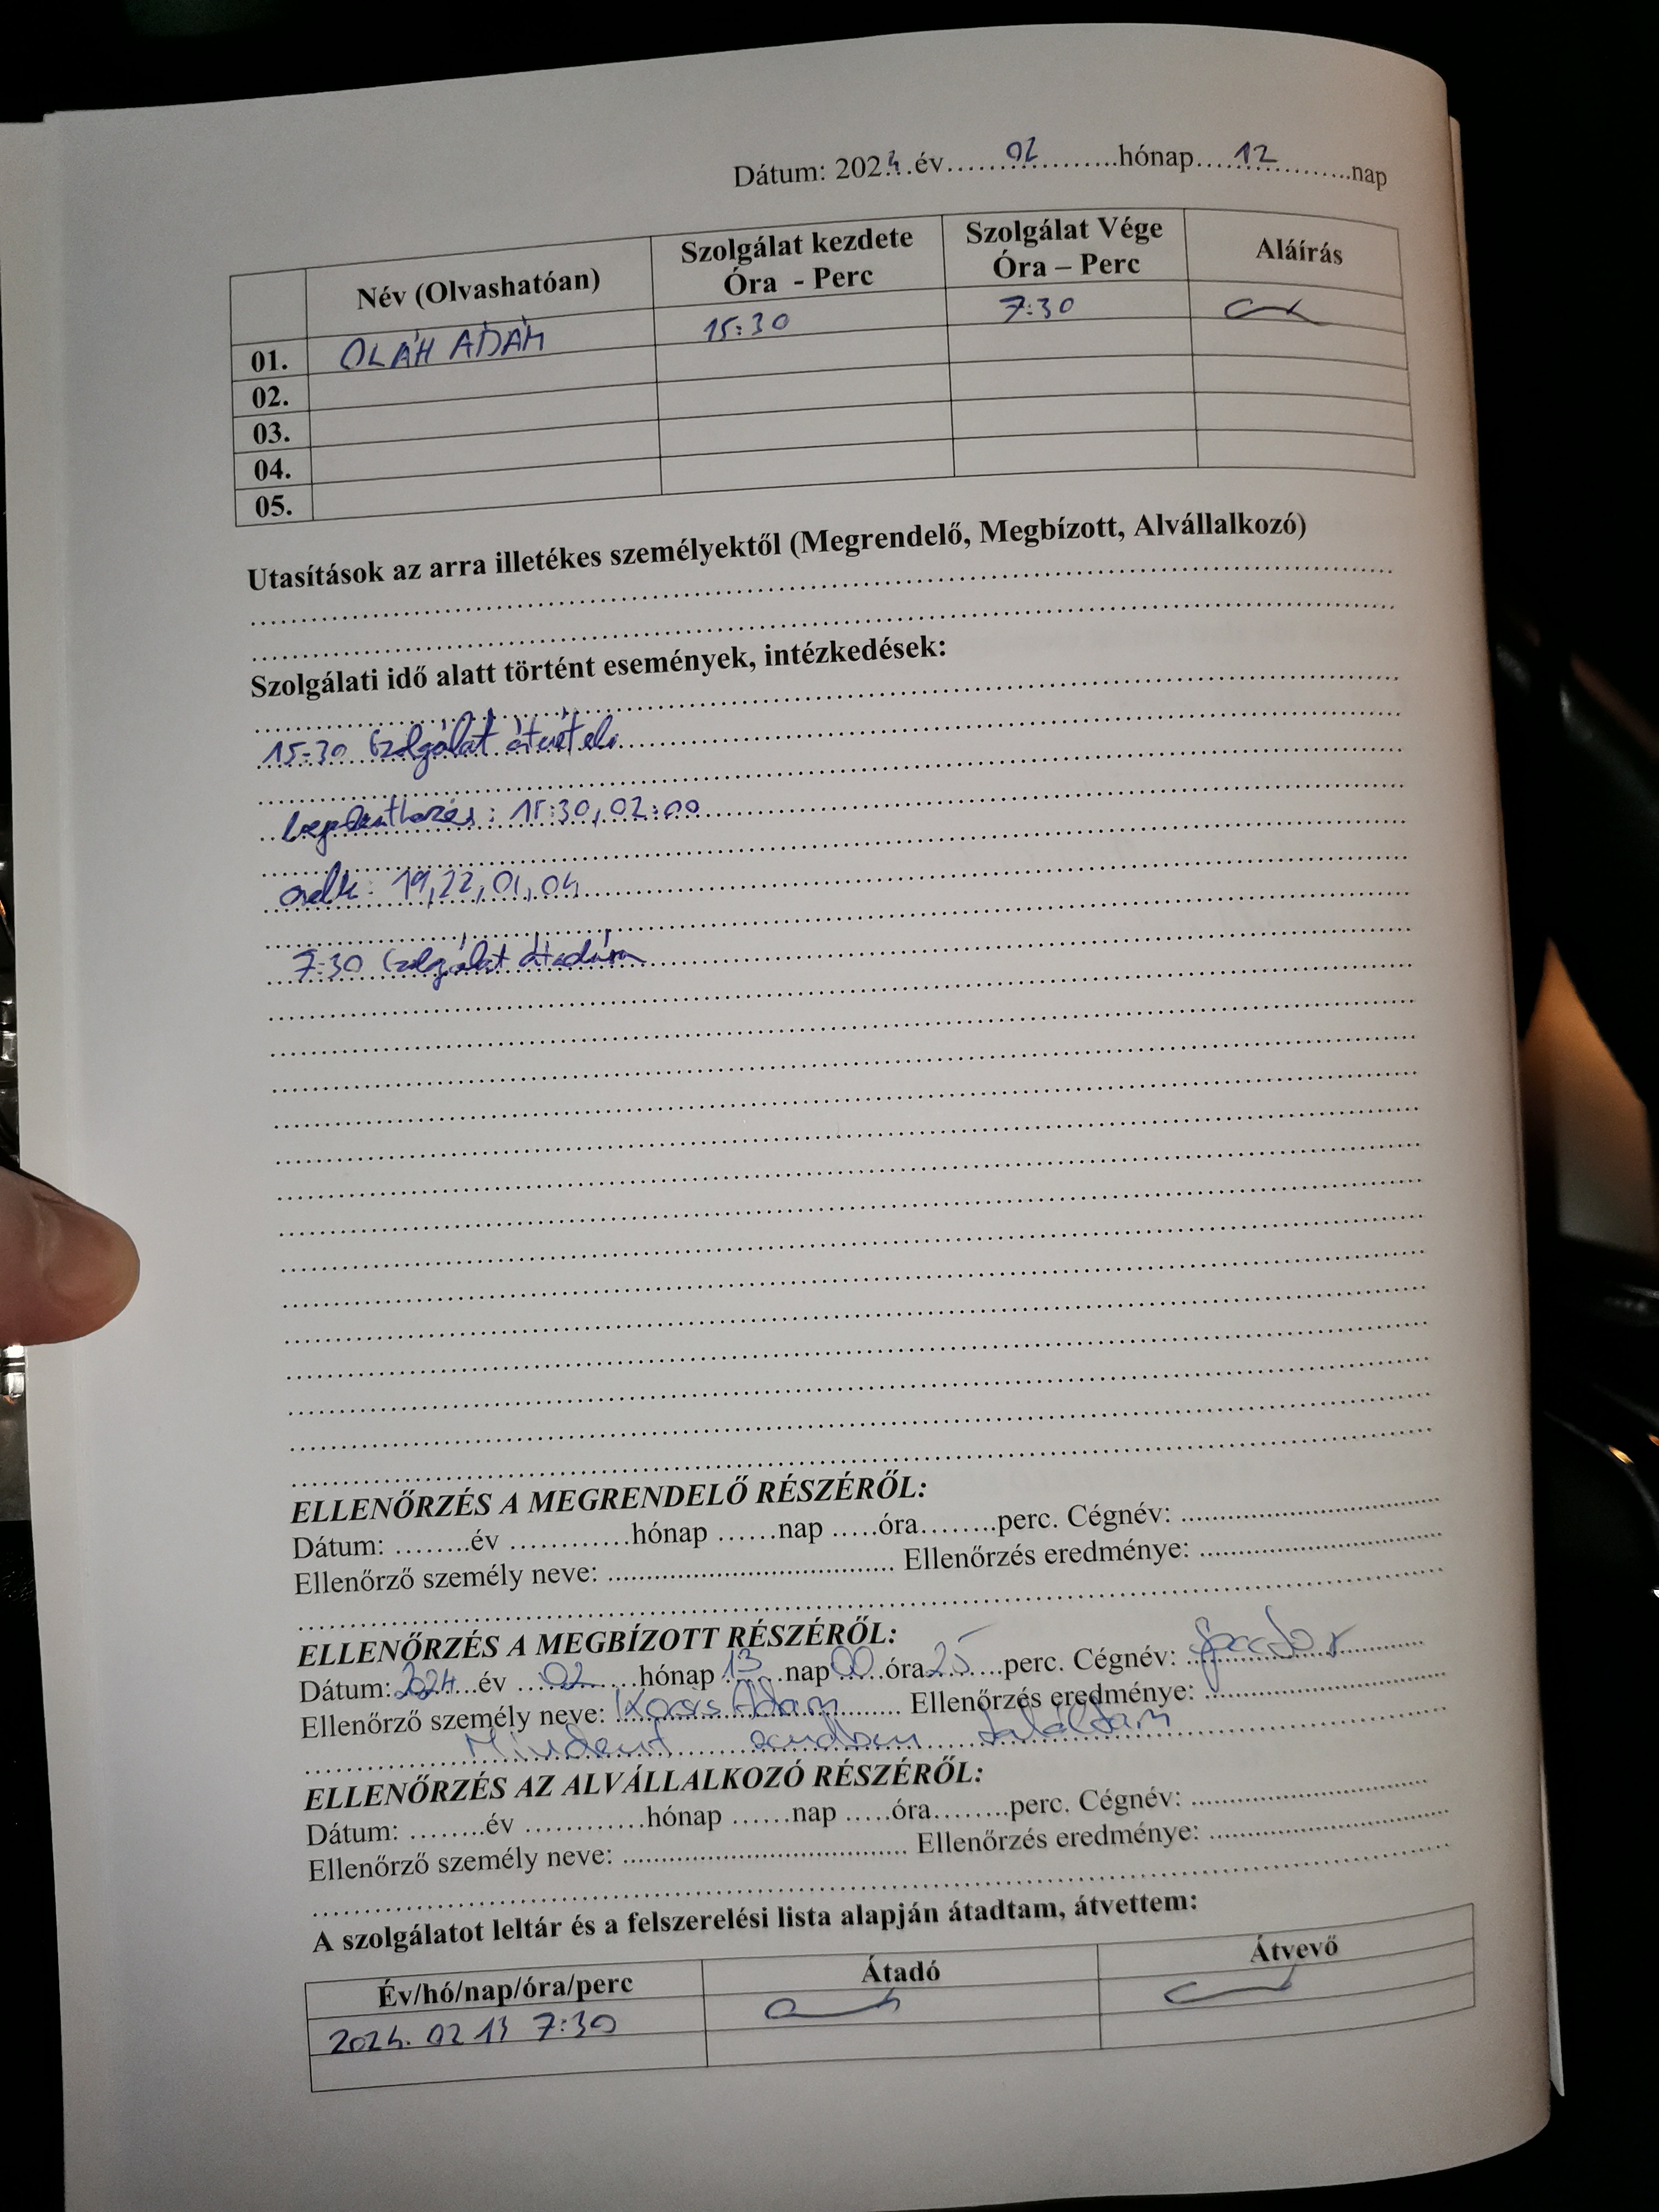 Dátum: 2024.év......02..........hónap....12..........nap
Név (Olvashatóan) Szolgálat kezdete Óra - Perc Szolgálat Vége Óra – Perc Aláírás
01. OLÁH ÁDÁM 15:30 7:30
02.
03.
04.
05.
Utasítások az arra illetékes személyektől (Megrendelő, Megbízott, Alvállalkozó)
Szolgálati idő alatt történt események, intézkedések:
15:30 Szolgálat átvétele
15:30, 02:00
19, 22, 01, 04
7:30 Szolgálat átadása
ELLENŐRZÉS A MEGRENDELŐ RÉSZÉRŐL:
Dátum: ........év ............hónap ......nap .....óra........perc. Cégnév: ..............................
Ellenőrző személy neve: ...................................... Ellenőrzés eredménye: ..............................
ELLENŐRZÉS A MEGBÍZOTT RÉSZÉRŐL:
Dátum: 2024 év 02 hónap 13 nap 00 óra 25 perc. Cégnév:
Ellenőrző személy neve: Kocsis Ádám Ellenőrzés eredménye:
Mindent rendben találtam
ELLENŐRZÉS AZ ALVÁLLALKOZÓ RÉSZÉRŐL:
Dátum: ........év ............hónap ......nap .....óra........perc. Cégnév: ..............................
Ellenőrző személy neve: ...................................... Ellenőrzés eredménye: ..............................
A szolgálatot leltár és a felszerelési lista alapján átadtam, átvettem:
Év/hó/nap/óra/perc Átadó Átvevő
2024. 02 13 7:30